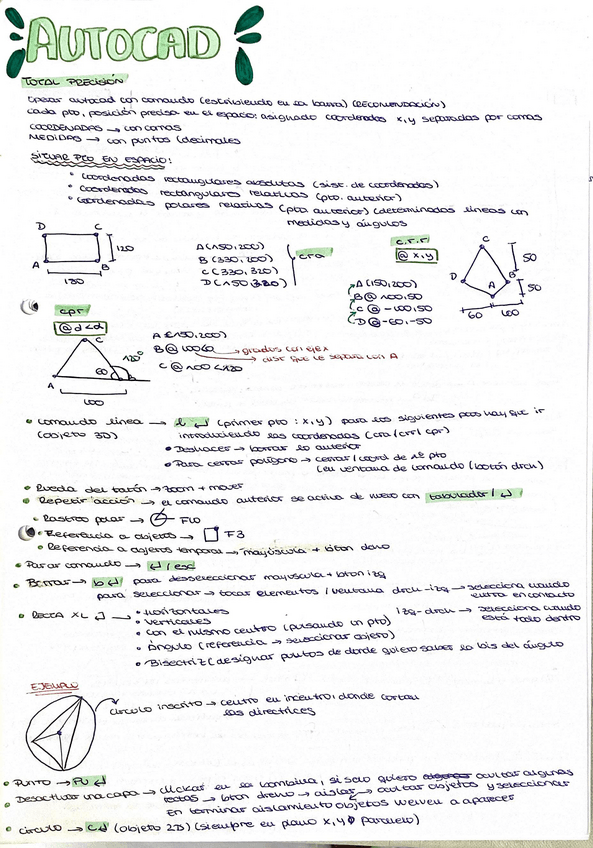 AUTOCAD
TOTAL PRECISIÓN
Operar autocad con comando (escribiendo en la barra) (RECOMENDACIÓN)
cada pto, posición precisa en el espacio: asignado coordenadas x,y separadas por comas
COORDENADAS → con comas
MEDIDAS → con puntos (decimales
SITUAR PTO EN ESPACIO:
• coordenadas rectangulares absolutas (sist. de coordenadas)
• coordenadas rectangulares relativas (pto. anterior)
• coordenadas polares relativas (pto anterior) (determinadas líneas con
medidas y ángulos
D C
A B
120
180
A (150,200)
B (330,200)
C (330,320)
D (150,320)
cra
c.r.r
@ x,y
A (150,200)
B @ 100,50
C @ -100,50
D @ -60,-50
C
D A B
50
50
60 100
cpr
@d<α
C
A 60 B
120°
100
A (150,200)
B @ 100<0 → grados con eje x
→ dist que le separa con A
C @ 100<120
• comando línea → l ↲ (primer pto : x,y) para los siguientes ptos hay que ir
(objeto 3D) introduciendo las coordenadas (cra/crr/cpr)
• Deshacer → borrar lo anterior
• Para cerrar polígono → cerrar / coord de 1º pto
(en ventana de comando (botón drch)
• Rueda del ratón → zoom + mover
• Repetir acción → el comando anterior se activa de nuevo con tabulador / ↲
• Rastreo polar → F10
• Referencia a objetos → F3
• Referencia a objetos temporal → mayúscula + btón drcho
• Parar comando → ↲ / esc
• Borrar → b ↲ para desseleccionar mayúscula + btón izq
para seleccionar → tocar elementos / ventana drch-izq → selecciona cuando
entra en contacto
izq-drch → selecciona cuando
está todo dentro
• RECTA XL ↲ → • Horizontales
• Verticales
• Con el mismo centro (pulsando un pto)
• Ángulo (referencia → seleccionar objeto)
• Bisectriz (designar puntos de donde quiero saber la bis del ángulo
EJEMPLO
círculo inscrito → centro en incentro, donde cortan
las directrices
• PUNTO → PU ↲
• Desactivar una capa → clickar en la bombilla, si solo quiero ocultar algunas
rectas → btón drcho → aislar → ocultar objetos y seleccionar
En terminar aislamiento objetos vuelven a aparecer
• círculo → C ↲ (objeto 2D) (siempre en plano x,y o paralelo)